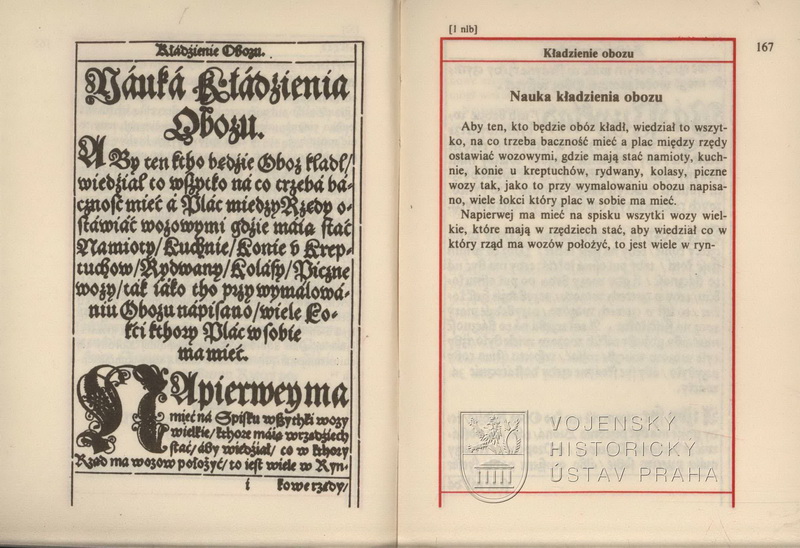 Kłádzienie Obozu.
Náuká Kłádzienia
Obozu.
ABy ten ktho będzie Oboz kładł/
wiedział to wszytko ná co trzebá bá-
czność mieć á Plác między Rzędy o-
stáwiáć wozowymi gdzie máią stać
Namioty/Kuchnie/Konie v Krep-
tuchow/Rydwany/Kolásy/Piczne
wozy/ták iáko tho przy wymalowá-
niu Obozu nápisano/wiele Ło-
kći kthory Plác w sobie
ma mieć.
NApierwey ma
mieć ná Spisku wszythki wozy
wielkie/kthore máią w rzędziech
stać/áby wiedział/co w kthory
Rząd ma wozow położyć/to iest wiele w Ryn-
i kowe rzędy/
[I nlb]
167
Kładzienie obozu
Nauka kładzienia obozu
Aby ten, kto będzie obóz kładł, wiedział to wszyt-
ko, na co trzeba baczność mieć a plac między rzędy
ostawiać wozowymi, gdzie mają stać namioty, kuch-
nie, konie u kreptuchów, rydwany, kolasy, piczne
wozy tak, jako to przy wymalowaniu obozu napisa-
no, wiele łokci który plac w sobie ma mieć.
Napierwej ma mieć na spisku wszytki wozy wiel-
kie, które mają w rzędziech stać, aby wiedział co w
który rząd ma wozów położyć, to jest wiele w ryn-
VOJENSKÝ
HISTORICKÝ
ÚSTAV PRAHA